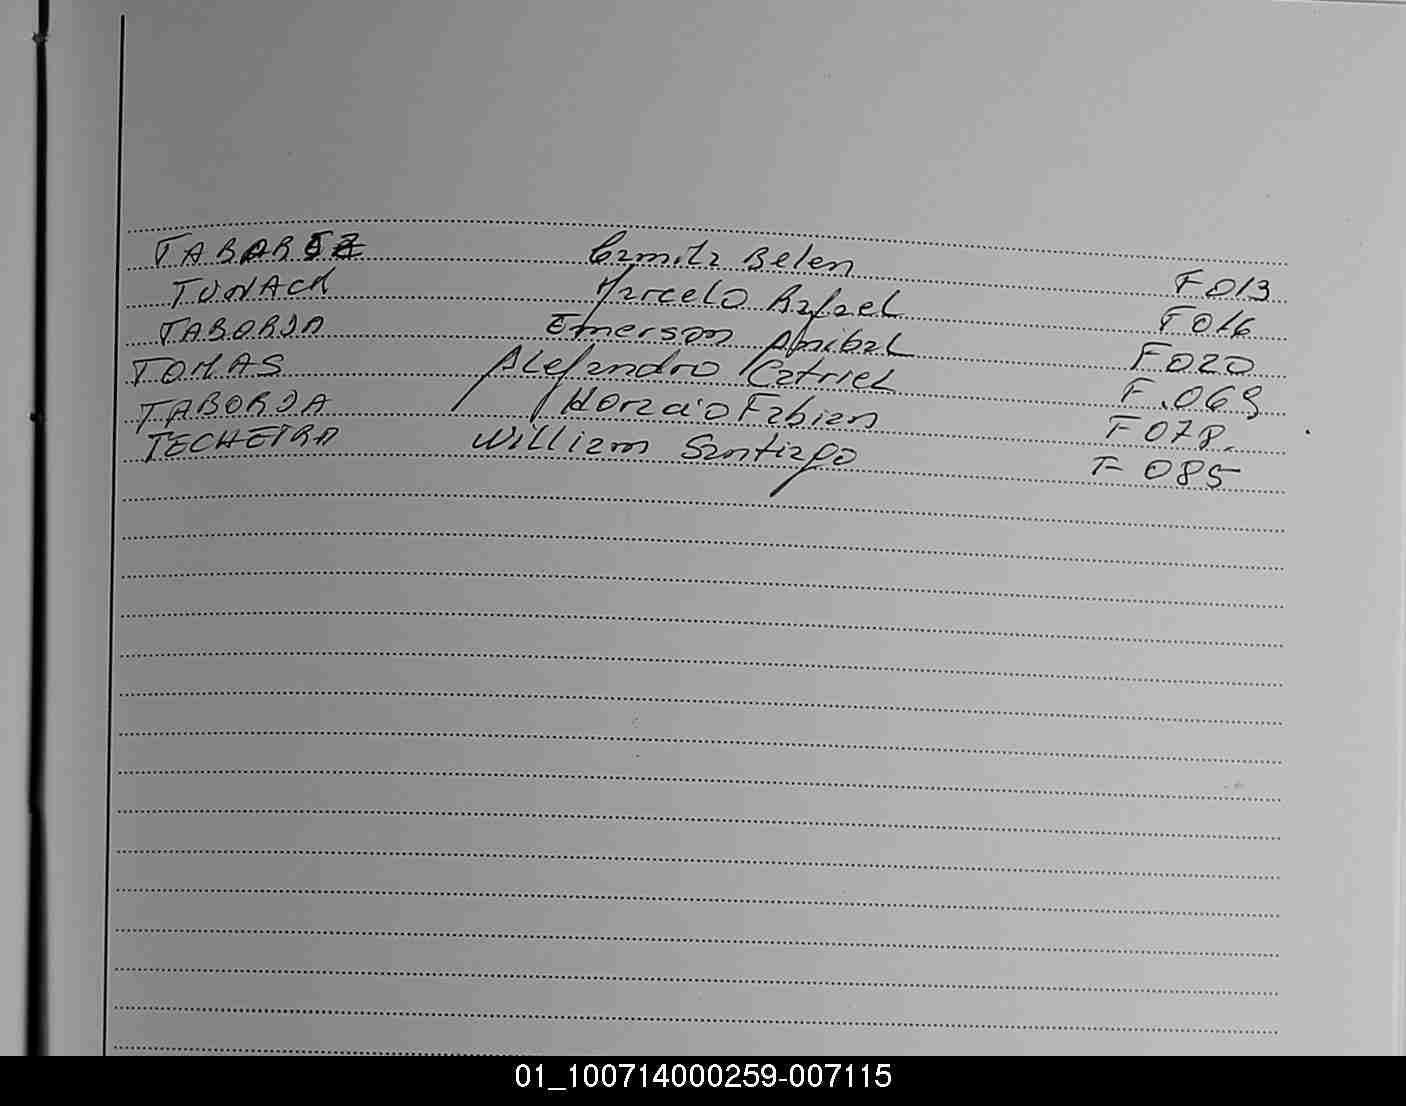 TABORJA Camila Belen F013
TONACK Marcelo Rafael F016
TABORJA Emerson Anibal F020
TOMAS Alejandro Catriel F.069
TABORJA Horacio Fabian F078.
TECHEIRA William Santiago F 085
01_100714000259-007115